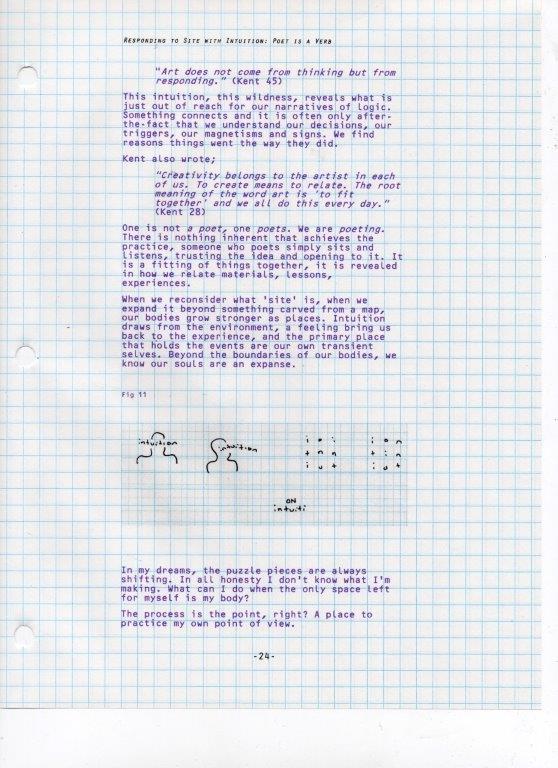 RESPONDING TO SITE WITH INTUITION: POET IS A VERB
"Art does not come from thinking but from
responding." (Kent 45)
This intuition, this wildness, reveals what is
just out of reach for our narratives of logic.
Something connects and it is often only after-
the-fact that we understand our decisions, our
triggers, our magnetisms and signs. We find
reasons things went the way they did.
Kent also wrote;
"Creativity belongs to the artist in each
of us. To create means to relate. The root
meaning of the word art is 'to fit
together' and we all do this every day."
(Kent 28)
One is not a poet, one poets. We are poeting.
There is nothing inherent that achieves the
practice, someone who poets simply sits and
listens, trusting the idea and opening to it. It
is a fitting of things together, it is revealed
in how we relate materials, lessons,
experiences.
When we reconsider what 'site' is, when we
expand it beyond something carved from a map,
our bodies grow stronger as places. Intuition
draws from the environment, a feeling bring us
back to the experience, and the primary place
that holds the events are our own transient
selves. Beyond the boundaries of our bodies, we
know our souls are an expanse.
Fig 11
intuition intuition i o i i o n
t n n t i n
i u t i u t
ON
intuiti
In my dreams, the puzzle pieces are always
shifting. In all honesty I don't know what I'm
making. What can I do when the only space left
for myself is my body?
The process is the point, right? A place to
practice my own point of view.
-24-